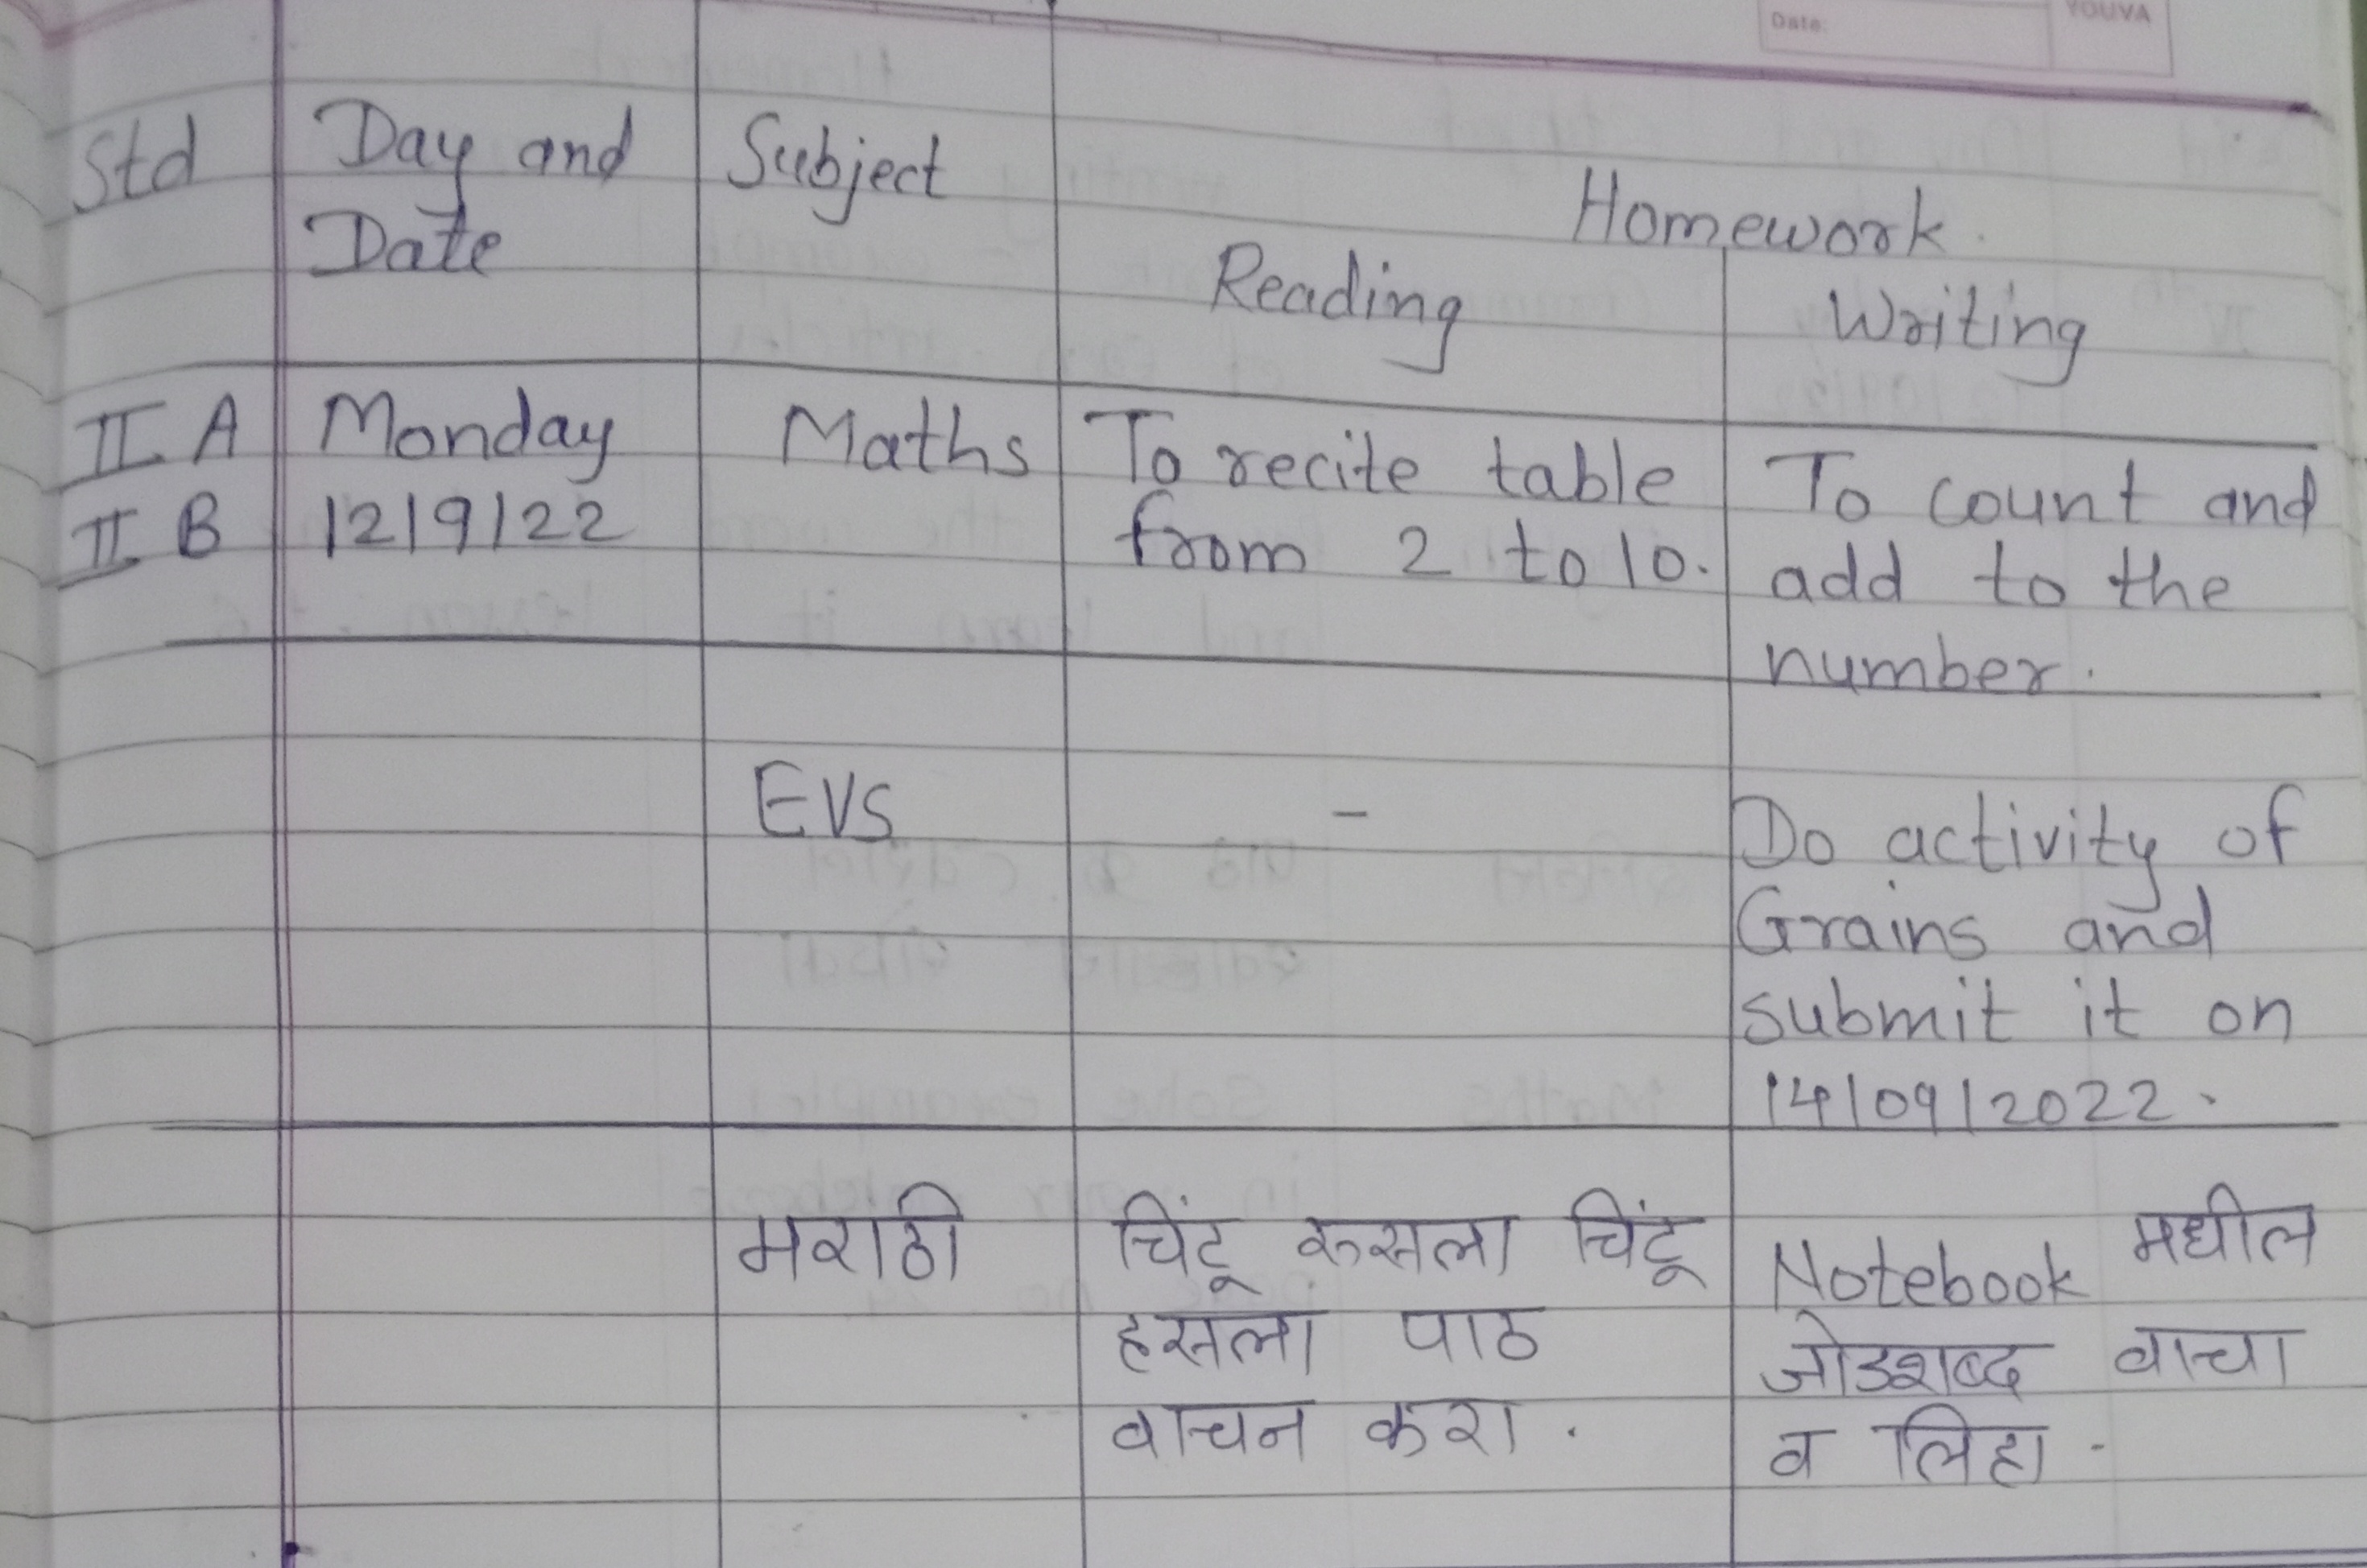 Date: YOUVA
Std Day and Subject Homework.
Date Reading Writing
II A Monday Maths To recite table To count and
II B 12/9/22 from 2 to 10. add to the
number.
EVS - Do activity of
Grains and
submit it on
14/09/2022.
मराठी चिंटू रुसला चिंटू Notebook मधील
हसला पाठ जोडशब्द वाचा
वाचन करा. व लिहा.